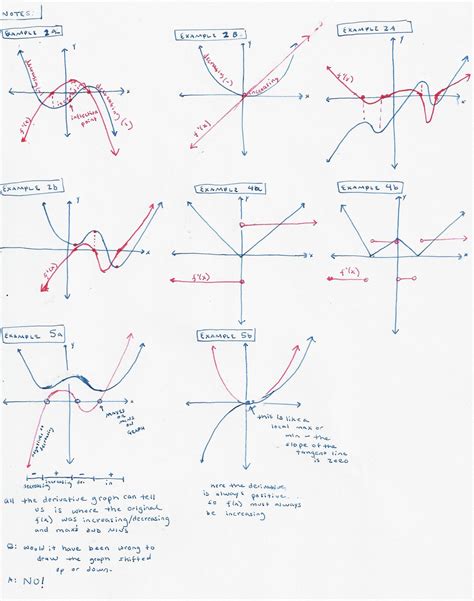 NOTES:
EXAMPLE 2a
y
x
decreasing (-)
increasing
decreasing (-)
inflection
point
f'(x)
EXAMPLE 2B
y
x
decreasing (-)
increasing
f'(x)
EXAMPLE 2A
y
x
f'(x)
EXAMPLE 2b
y
x
f'(x)
EXAMPLE 4a
y
x
f'(x)
EXAMPLE 4b
y
x
f'(x)
EXAMPLE 5a
y
x
MAXES
OR
MINS
ON
GRAPH
negative =
decreasing
- + - +
decreasing
increasing
EXAMPLE 5b
y
x
this is like a
local max or
min - the
slope of the
tangent line
is zero
here the derivative
is always positive...
so f(x) must always
be increasing
all the derivative graph can tell
us is where the original
f(x) was increasing/decreasing
and maxs and mins
Q: would it have been wrong to
draw the graph shifted
up or down.
A: NO!